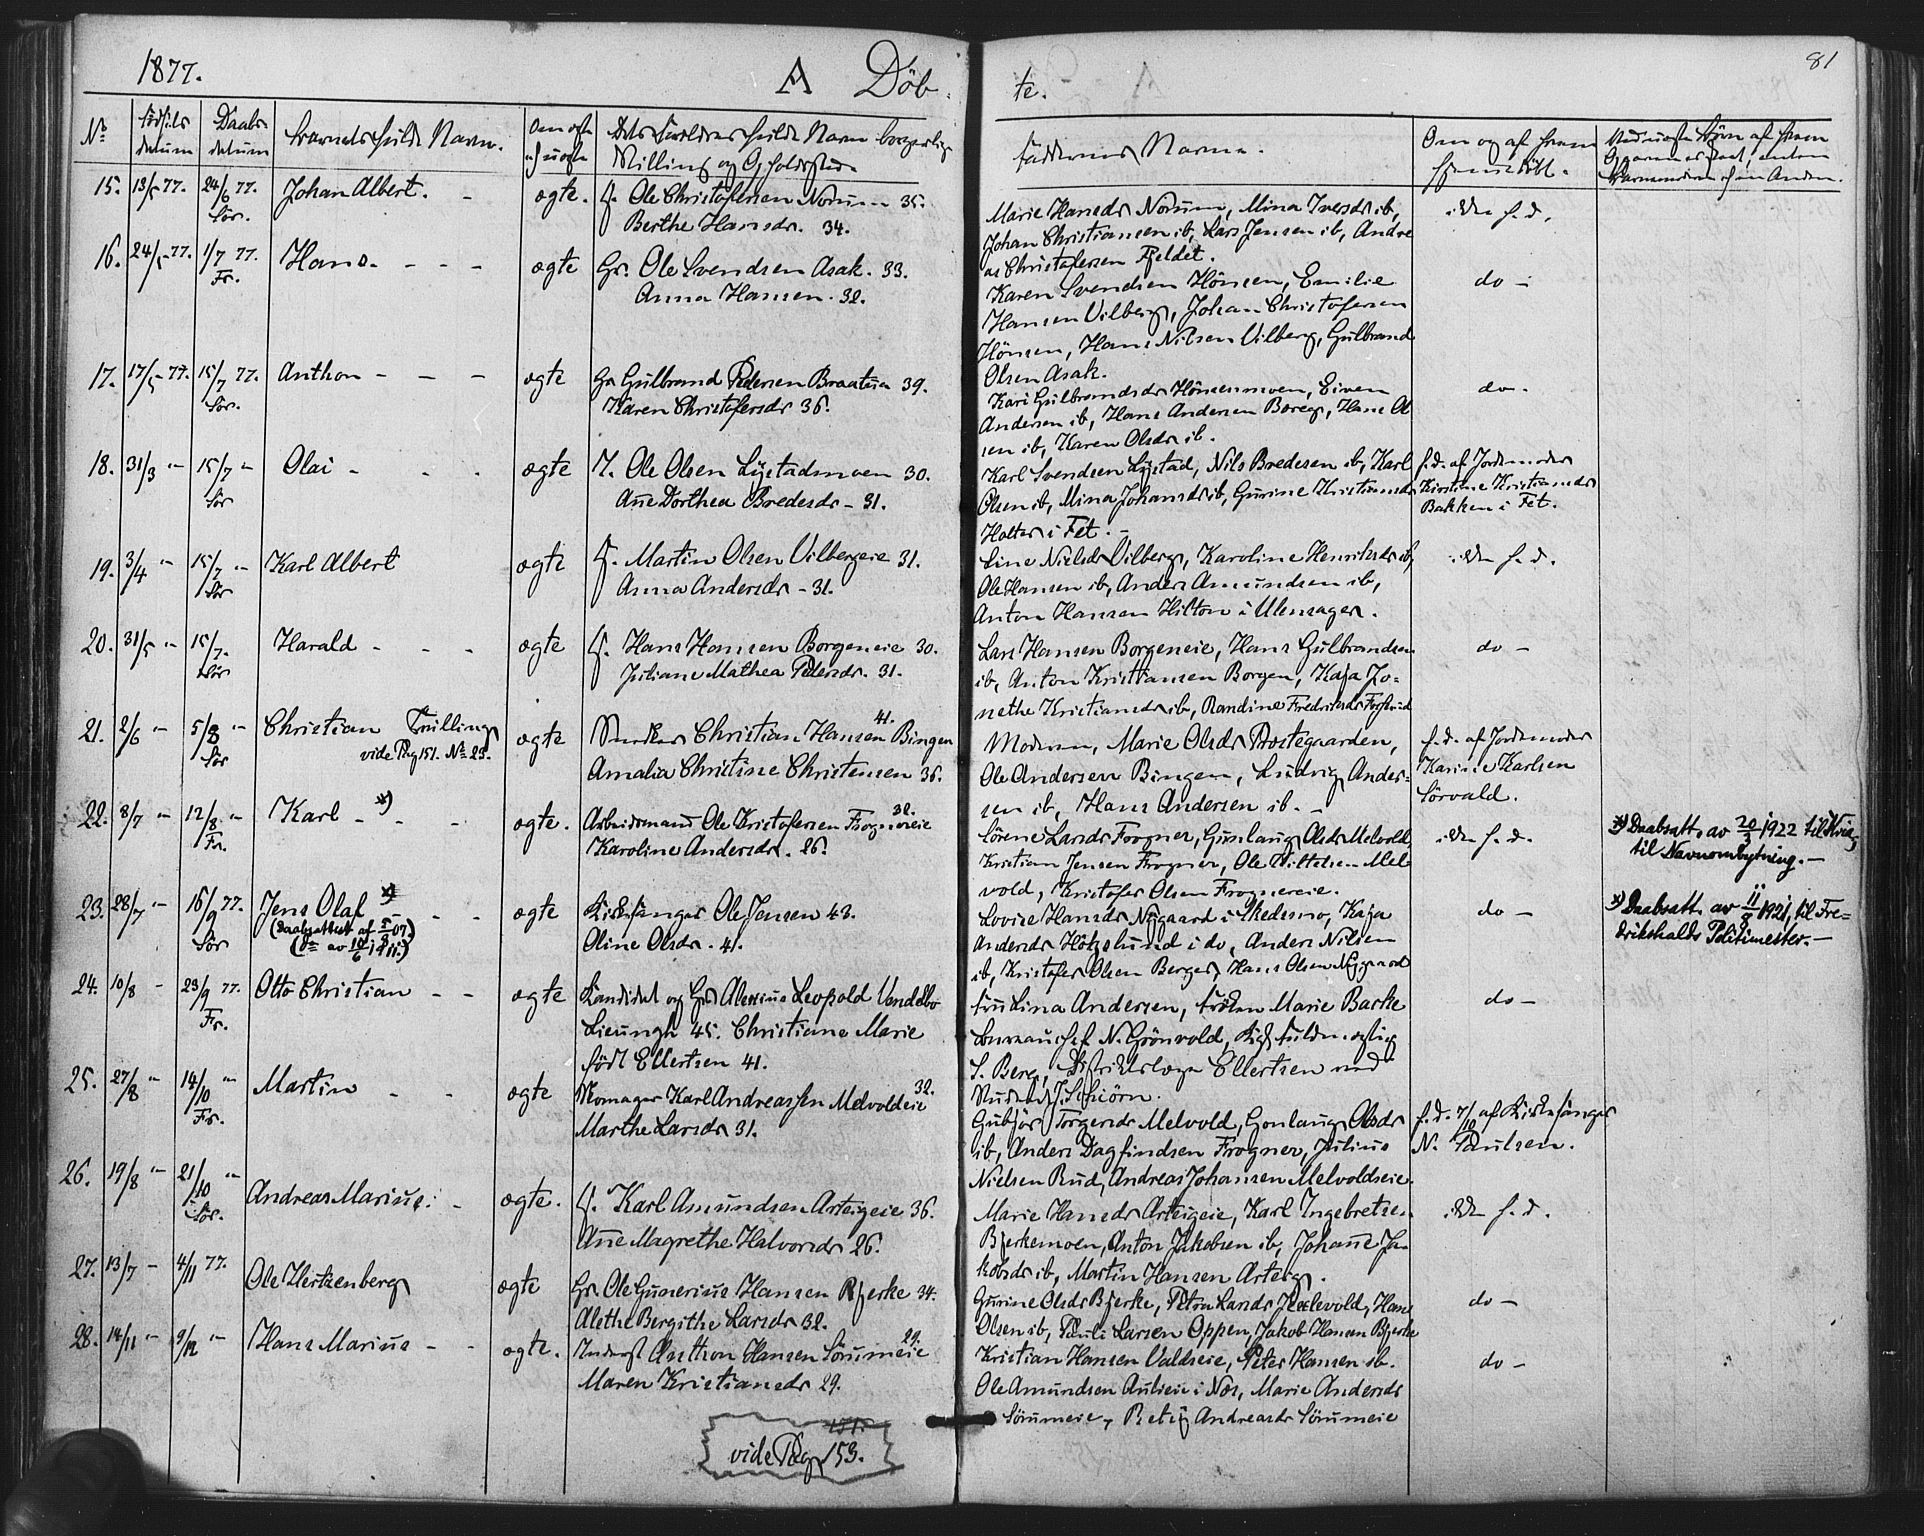 1877.
A Döb-
te.
81
No
Fødsels datum
Daabs datum
Barnets fulde Navn.
Om ægte el. uægte
Dets Forældres fulde Navn borgerlige
Stilling og Opholdssted
Faddernes Navne.
15. 13/5 77. 24/6 77. Sör. Johan Albert. ægte. Ole Christofersen Norum 35.
Berthe Hansdr. 34.
Marie Hansdr Norum, Mina Iversdr ib,
Johan Christiansen ib, Lars Jensen ib, Andre
as Christofersen Fjeldet.
ikke h. d.
16. 24/5 77. 1/7 77. Fr. Hans. ægte Gr. Ole Svendsen Asak. 33.
Anna Hansen. 32.
Karen Svendsen Hönsen, Emilie
Hansen Vilberg, Johan Christofersen
Hönsen, Hans Nilsen Vilberg, Gulbrand
Olsen Asak.
do -
17. 17/5 77. 15/7 77. Sör. Anthon ægte Gr Gulbrand Pedersen Braaten 39.
Karen Christofersdr 36.
Kari Gulbrandsdr Hönsenmoen, Even
Andersen ib, Hans Andersen Berg, Hans Ol
sen ib, Karen Olsdr ib.
do.
18. 31/3 " 15/7 " Sör Olai ægte Ole Olsen Lystadmoen 30.
Ane Dorthea Bredesdr - 31.
Karl Svendsen Lystad, Nils Bredesen ib, Karl
Olsen ib, Mina Johansdr ib, Gurine Kristiansdr
Holter i Fet.
h. d. af Jordemoder
Kirstine Kristiansdr
Bakken i Fet.
19. 3/4 " 15/7 " Sör Karl Albert ægte Martin Olsen Vilbergeie 31.
Anna Andersdr - 31.
Line Nielsdr Vilberg, Karoline Henriksdr ib,
Ole Hansen ib, Anders Amundsen ib,
Anton Hansen Hilton i Ulensager.
ikke h. d.
20. 31/5 " 15/7. Sör Harald ægte Hans Hansen Borgeneie 30.
Juliane Mathea Pedersdr. 31.
Lars Hansen Borgeneie, Hans Gulbrandsen
ib, Anton Kristiansen Borgen, Kaja Jo-
nethe Kristiansdr ib, Randine Fredriksdr
do -
21. 2/6 " 5/8 " Sör Christian Tvilling
vide Pag 151. No 23.
ægte Christian Hansen Bingen 41.
Amalia Christine Christensen 36.
Moderen, Marie Olsdr Præstegaarden,
Ole Andersen Bingen, Ludvig Ander-
sen ib, Hans Andersen ib. -
h. d. af Jordemoder
Karine Karlsen
Sörvald.
22. 8/7 " 12/8 " Fr. Karl - *) ægte. Arbeidsmand Ole Kristofersen Frognereie 32.
Karoline Andersdr. 26.
Sörene Larsdr Frogner, Gunlaug Olsdr Melvold,
Kristian Jensen Frogner, Ole Mel
vold, Kristofer Olsen Frognereie.
ikke h. d.
*) Daabsatt. av 20/3 1922 til
til Navneombytning. -
23. 28/7 " 16/9 77. Sör Jens Olaf *)
(Daabsattest af 5/8 07.)
(Do av 10/6 1911.)
ægte Kirkesanger Ole Jensen 43.
Oline Olsdr. 41.
Lovise Hansdr Nygaard i Skedsmo, Kaja
Andersdr i do, Anders Nilsen
ib, Kristofer Olsen Berger, Hans Olsen Nygaard
do -
*) Daabsatt. av 11/8 1921, til Fre-
drikshalds Politimester. -
24. 10/8 - 23/9 77. Fr. Otto Christian ægte Kandidat og Alexius Leopold Vendelbo
Lieungh 45. Christiane Marie
födt Ellertsen 41.
Fru Lina Andersen, Fröken Marie Barke
Bureauchef N. Grönvold,
S. Berg, Distriktslæge Ellertsen med
Student J. Schiörn.
do -
25. 27/8 " 14/10 " Fr. Martin ægte Skomager Karl Andreassen Melvoldeie 32.
Marthe Larsdr 31.
Gubjör Torgersdr Melvold, Gonlaug Olsdr
ib, Anders Dagfindsen Frogner, Julius
Nielsen Rud, Andreas Johansen Melvoldseie.
h. d. 7/10 af Kirkesanger
N. Paulsen.
26. 19/8 " 21/10 " Sör. Andreas Marius. ægte. Karl Amundsen Arteigeie 36.
Ane Magrethe Halvorsdr 26.
Marie Hansdr Arteigeie, Karl Ingebretsen
Bjerkemoen, Anton Jakobsen ib, Johane Ja-
kobsdr ib, Martin Hansen Arteig.
ikke h. d.
27. 13/7 - 4/11 77. Ole Hertzenberg ægte Gr. Ole Gunerius Hansen Bjerke 34.
Alethe Bergithe Larsdr 32.
Gurine Olsdr Bjerke, Petra Larsdr, Hans
Olsen ib, Pauli Larsen Oppen, Jakob Hansen Bjerke
do -
28. 14/11 " 9/12 " Hans Marius ægte. Inderst Anthon Hansen Sörumeie 29.
Maren Kristiansdr 29.
Kristian Hansen Valdseie, Peter Hansen ib.
Ole Amundsen Aulieie i Nes, Marie Andersdr
Sörumeie, Andreasdr Sörumeie
do -
151.
vide Pag 153.